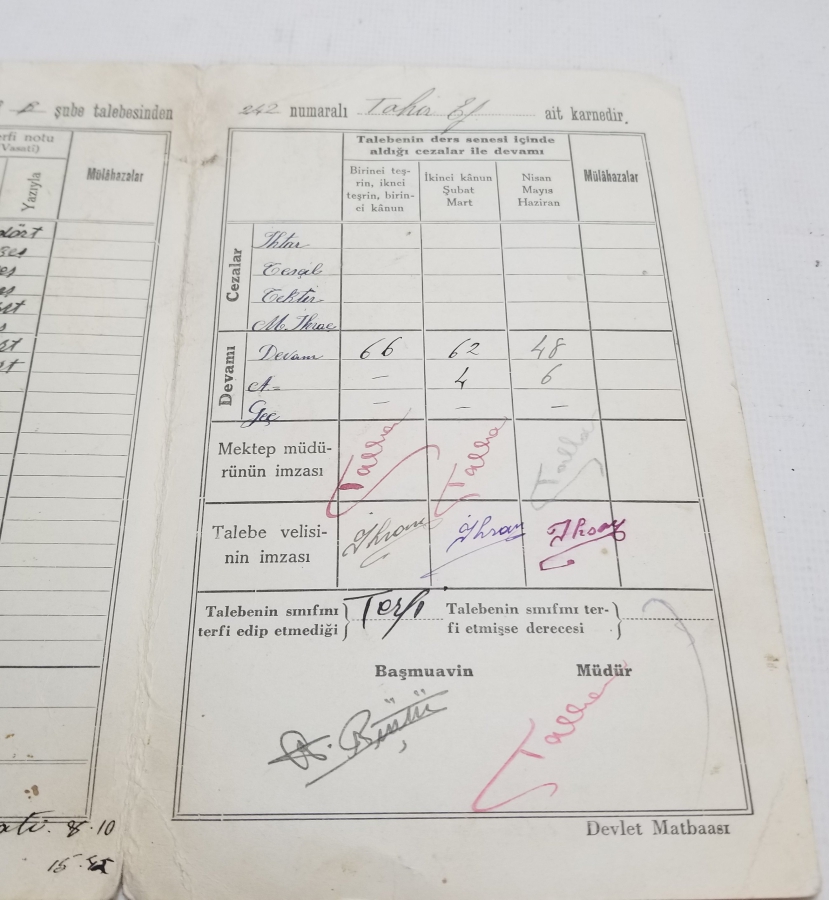 şube talebesinden
242 numaralı Tahir Ef ait karnedir.
erfi notu
(Vasatî)
Yazıyla
Mülâhazalar
dört
Talebenin ders senesi içinde
aldığı cezalar ile devamı
Birinci teş-
rin, iknci
teşrin, birin-
ci kânun
İkinci kânun
Şubat
Mart
Nisan
Mayıs
Haziran
Mülâhazalar
Cezalar
İhtar
Tescil
Tektir
M. İhraç
Devamı
Devam 66 62 48
A.= — 4 6
Geç — — —
Mektep müdü-
rünün imzası
Talha Talha Talha
Talebe velisi-
nin imzası
İhsan İhsan İhsan
Talebenin sınıfını
terfi edip etmediği
Terfi
Talebenin sınıfını ter-
fi etmişse derecesi
Başmuavin
Müdür
Talha
8.10
Devlet Matbaası